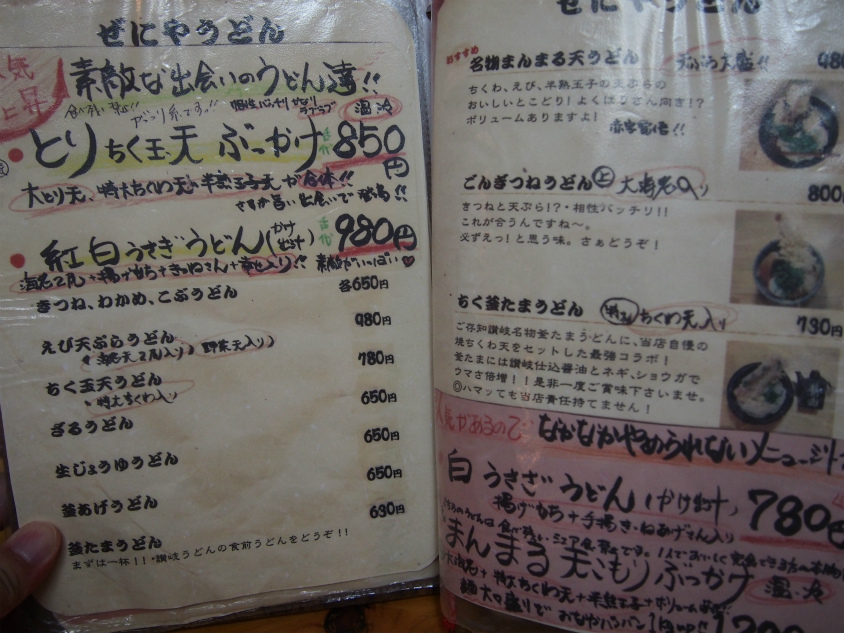 ぜにやうどん
素敵な出会いのうどん達!!
温・冷
とりちく玉天 ぶっかけ 850円
大とり天、特大ちくわ天、半熟玉子天が合体!!
紅白うさぎうどん(かけ出汁) 980円
きつね、わかめ、こぶうどん 各650円
えび天ぷらうどん 980円
(海老天2尾入り) 野菜天入り
ちく玉天うどん 780円
(特大ちくわ入り)
ざるうどん 650円
生じょうゆうどん 650円
釜あげうどん 650円
釜たまうどん 690円
まずは一杯!!・讃岐うどんの食前うどんをどうぞ!!
ぜにやうどん
おすすめ
名物まんまる天うどん 980
ちくわ、えび、半熟玉子の天ぷらの
おいしいとこどり!よくばりさん向き!?
ボリュームありますよ!
赤字覚悟!!
ごんぎつねうどん 上 大海老入り 800
きつねと天ぷら!?・相性バッチリ!!
これが合うんですね〜。
必ずえっ!と思う味。さぁどうぞ!
ちく釜たまうどん 特大ちくわ天入り 730円
ご存知讃岐名物釜たまうどんに、当店自慢の
焼ちくわ天をセットした最強コラボ!
釜たまには讃岐仕込醤油とネギ、ショウガで
ウマさ倍増!!是非一度ご賞味下さいませ。
◎ハマッても当店責任持てません!
人気があるので なかなかやめられないメニュー
白うさぎうどん(かけ出汁) 780円
揚げもち+手揚き・ねあげさん入り
まんまる天こもりぶっかけ 温・冷